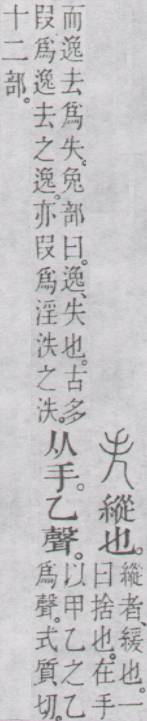 失縱也。
縱者、緩也。一
曰捨也。在手
而逸去爲失。兔部曰。逸、失也。古多
叚爲逸去之逸。亦叚爲淫泆之泆。
从手。乙聲。
以甲乙之乙
爲聲。式質切。
十二部。